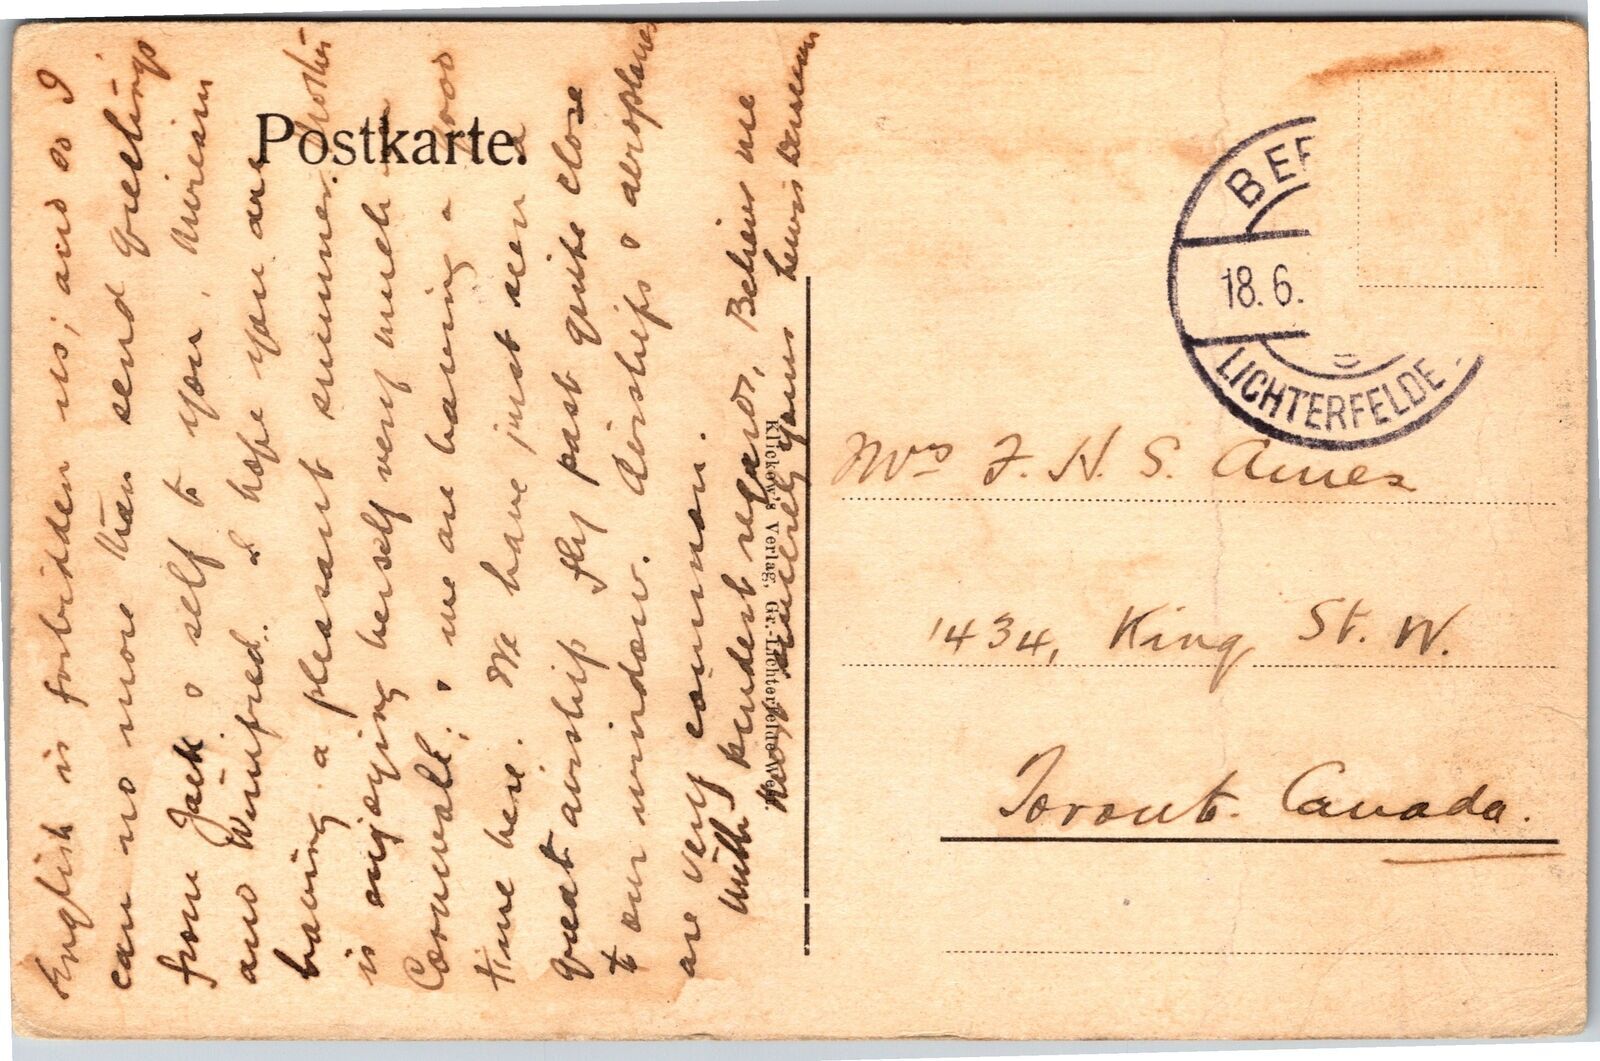 Postkarte.
English is forbidden us; and so I
can no more than send greetings
from Jack & self to you, Miriam
and Winifred. I hope you are
having a pleasant summer. Mother
is enjoying herself very much in
Cornwall; & we are having a good
time here. We have just seen a
great airship fly past quite close
to our window. Airships & aeroplanes
are very common.
With kindest regards, Believe me
sincerely yours Lewis
Klickow's Verlag, Gr.-Lichterfelde-West
BER
18.6.
LICHTERFELDE
Mrs F. H. S. Ames
1434, King St. W.
Toront. Canada.